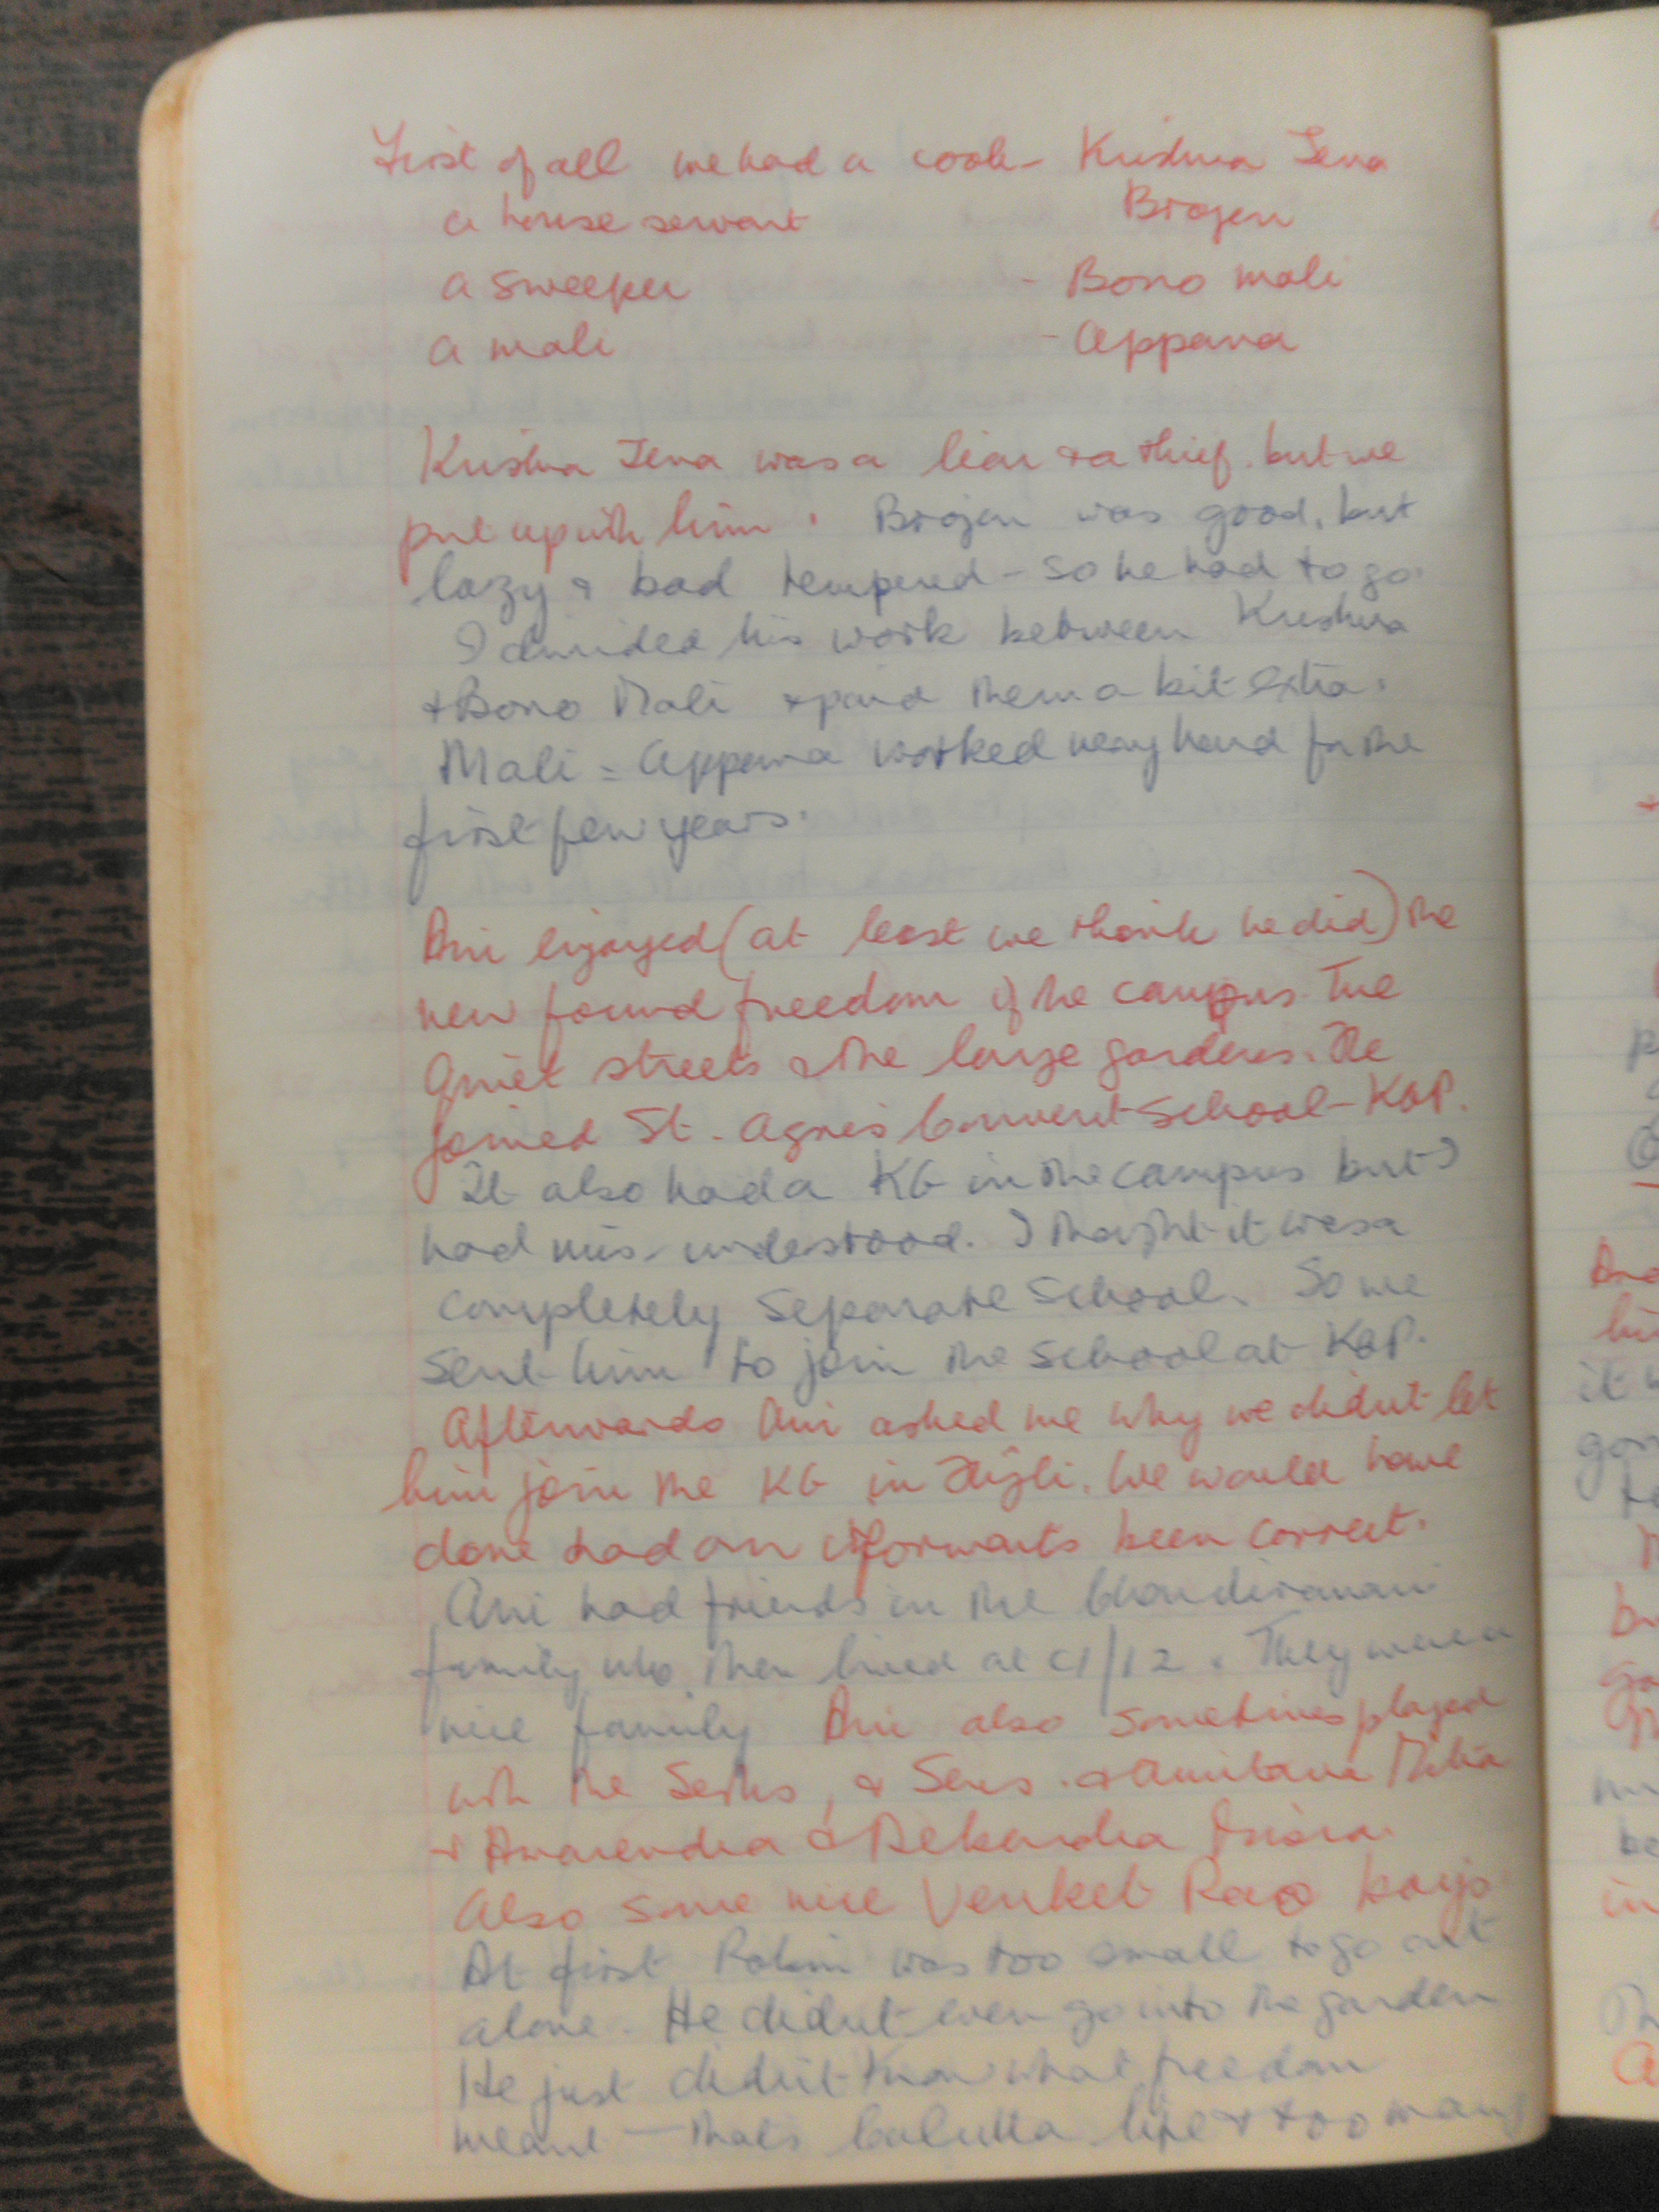 First of all we had a cook - Krishna Jena
a house servant Brojen
a sweeper - Bono mali
a mali - Appana
Krishna Jena was a liar & a thief. but we
put up with him. Brojen was good, but
lazy & bad tempered - so he had to go.
I divided his work between Krishna
& Bono Mali & paid them a bit extra.
Mali = Appana worked very hard for the
first few years.
Ani enjoyed (at least we think he did) the
new found freedom of the campus. The
quiet streets & the large gardens. He
joined St. Agnes Convent School - KGP.
It also had a KG in the campus but I
had mis-understood. I thought it was a
completely separate school. So we
sent him to join the school at KGP.
Afterwards Ani asked me why we didn't let
him join the KG in Hijli. We would have
done had our informants been correct.
Ani had friends in the
family who then lived at C1/12. They were a
nice family Ani also sometimes played
with the Seths, & Sens. & Amitava Mitra
& Amarendra &
Also some nice Venket Rao boys.
At first Robin was too small to go out
alone. He didn't even go into the garden
He just didn't know what freedom
meant - that's Calcutta life & too many